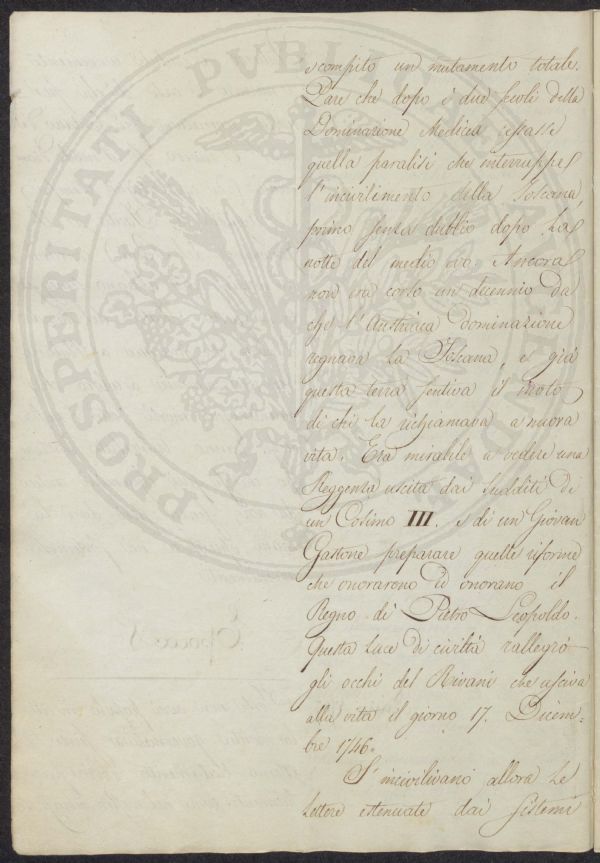 scompito un mutamento totale.
Pare che dopo i due secoli della
Dominazione Medicea cessasse
quella paralisi che interruppe
l'incivilimento della Toscana,
primo senza dubbio dopo la
notte del medio evo. Ancora
non era corso un decennio da
che l'Austriaca dominazione
regnava la Toscana, e già
questa terra sentiva il moto
di chi la richiamava a nuova
vita. Era mirabile a vedere una
Reggenza uscita dai sudditi di
un Cosimo III. e di un Giovan
Gastone preparare quelle riforme
che onorarono ed onorano il
Regno di Pietro Leopoldo.
Questa luce di civiltà rallegrò
gli occhi del Rivani che usciva
alla vita il giorno 17. Dicem=
bre 1746.
S'incivilivano allora le
lettere estenuate dai sistemi
PROSPERITATI PVBLICAE